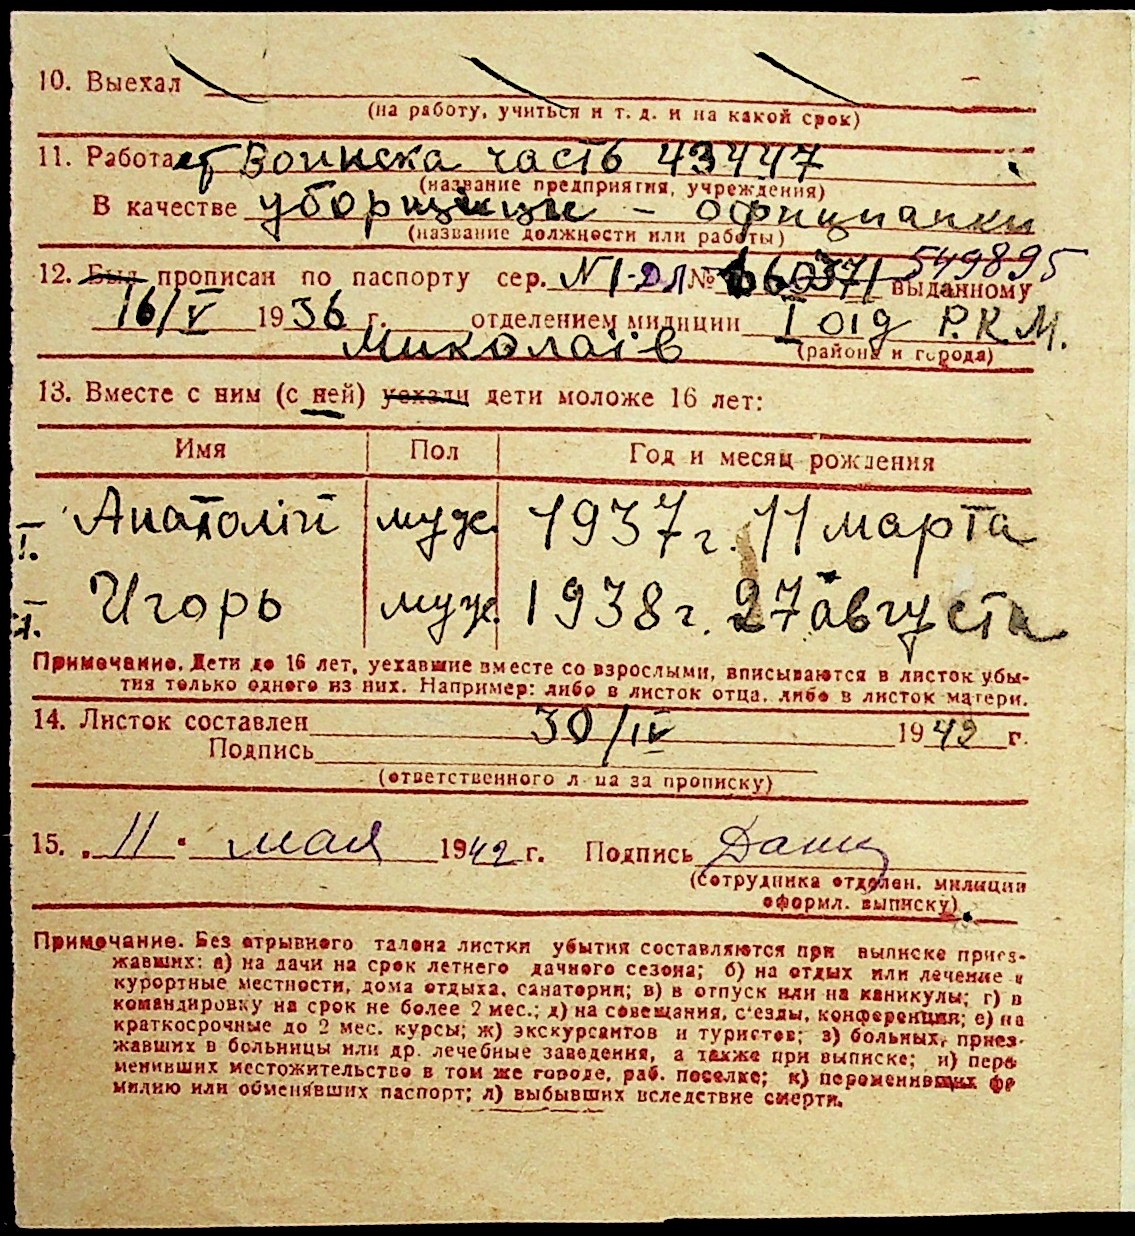 10. Выехал
(на работу, учиться и т. д. и на какой срок)
11. Работает Воинска часть 43447
(название предприятия, учреждения)
В качестве уборщици - официанки
(название должности или работы)
12. Был прописан по паспорту сер. № 549895 выданному
16/V 1936 г. отделением милиции I от P.K.M.
Миколаів (района и города)
13. Вместе с ним (с ней) уехали дети моложе 16 лет:
Имя Пол Год и месяц рождения
I. Анатолій муж. 1937 г. 11 марта
II. Игорь муж. 1938 г. 27 августа
Примечание. Дети до 16 лет, уехавшие вместе со взрослыми, вписываются в листок убы-
тия только одного из них. Например: либо в листок отца, либо в листок матери.
14. Листок составлен 30/IV 1942 г.
Подпись
(ответственного лица за прописку)
15. „11" мая 1942 г. Подпись
(сотрудника отделен. милиции
оформл. выписку)
Примечание. Без отрывного талона листки убытия составляются при выписке приез-
жавших: а) на дачи на срок летнего дачного сезона; б) на отдых или лечение в
курортные местности, дома отдыха, санатории; в) в отпуск или на каникулы; г) в
командировку на срок не более 2 мес.; д) на совещания, с'езды, конференция; е) на
краткосрочные до 2 мес. курсы; ж) экскурсантов и туристов; з) больных, приез-
жавших в больницы или др. лечебные заведения, а также при выписке; и) пере
менивших местожительство в том же городе, раб. поселке; к) переменивших фа
милию или обменявших паспорт; л) выбывших вследствие смерти.